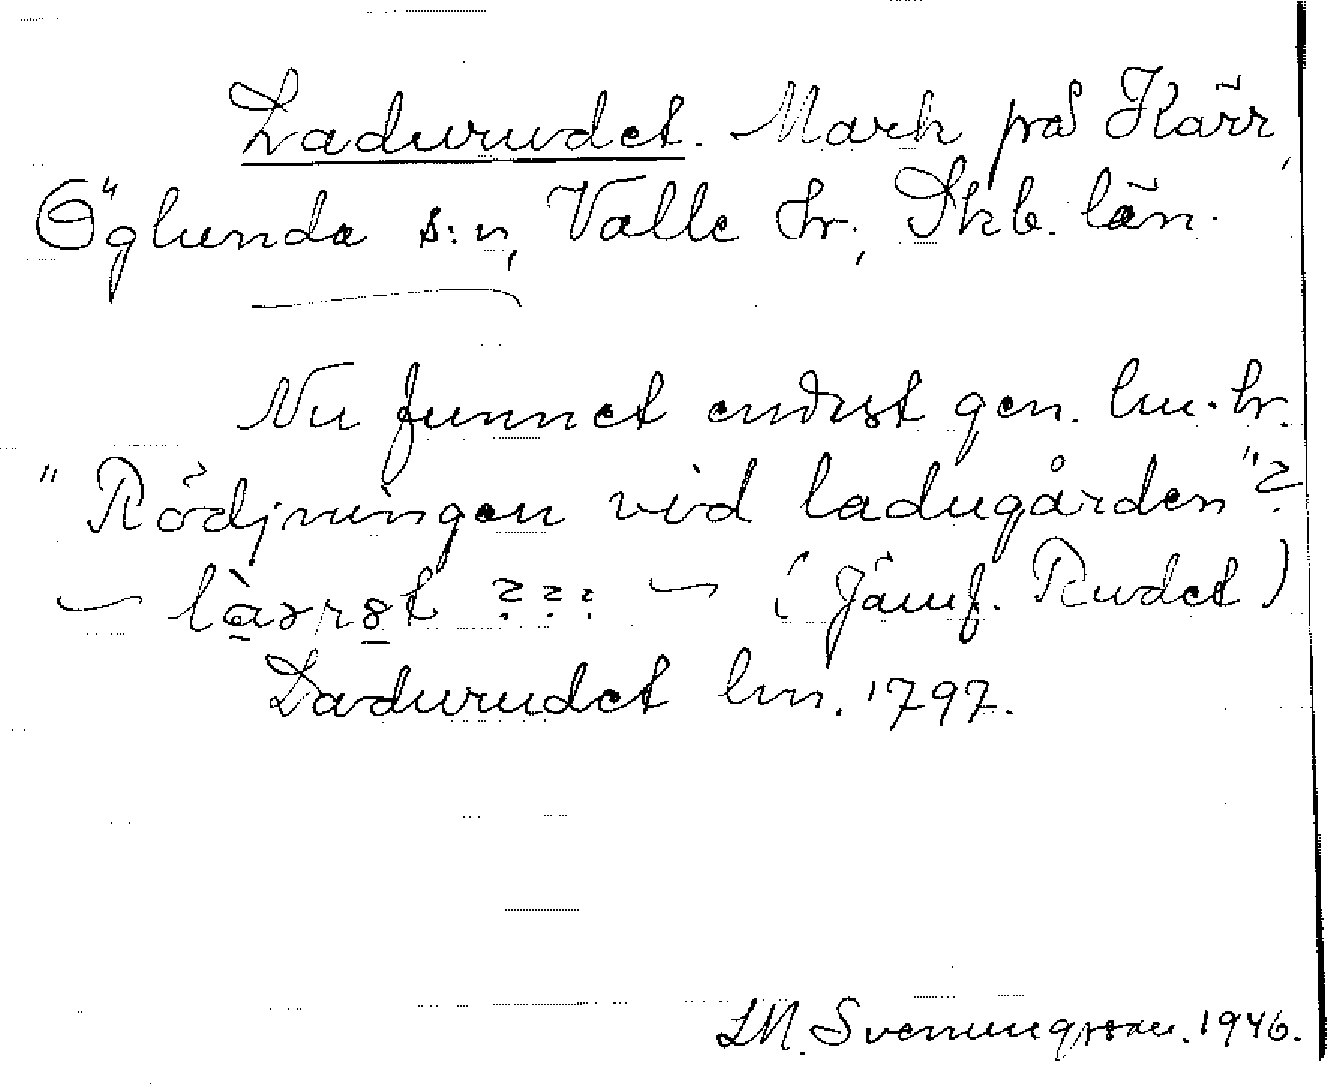 Ladurudet. Mark på Kärr,
Öglunda s:n, Valle hr., Skb. län.
Nu funnet endast gen. lm. hr.
"Rödjningen vid ladugården"?
— ??? — (Jämf. Rudet)
Ladurudet lm. 1797.
LM. Svenungsson. 1946.